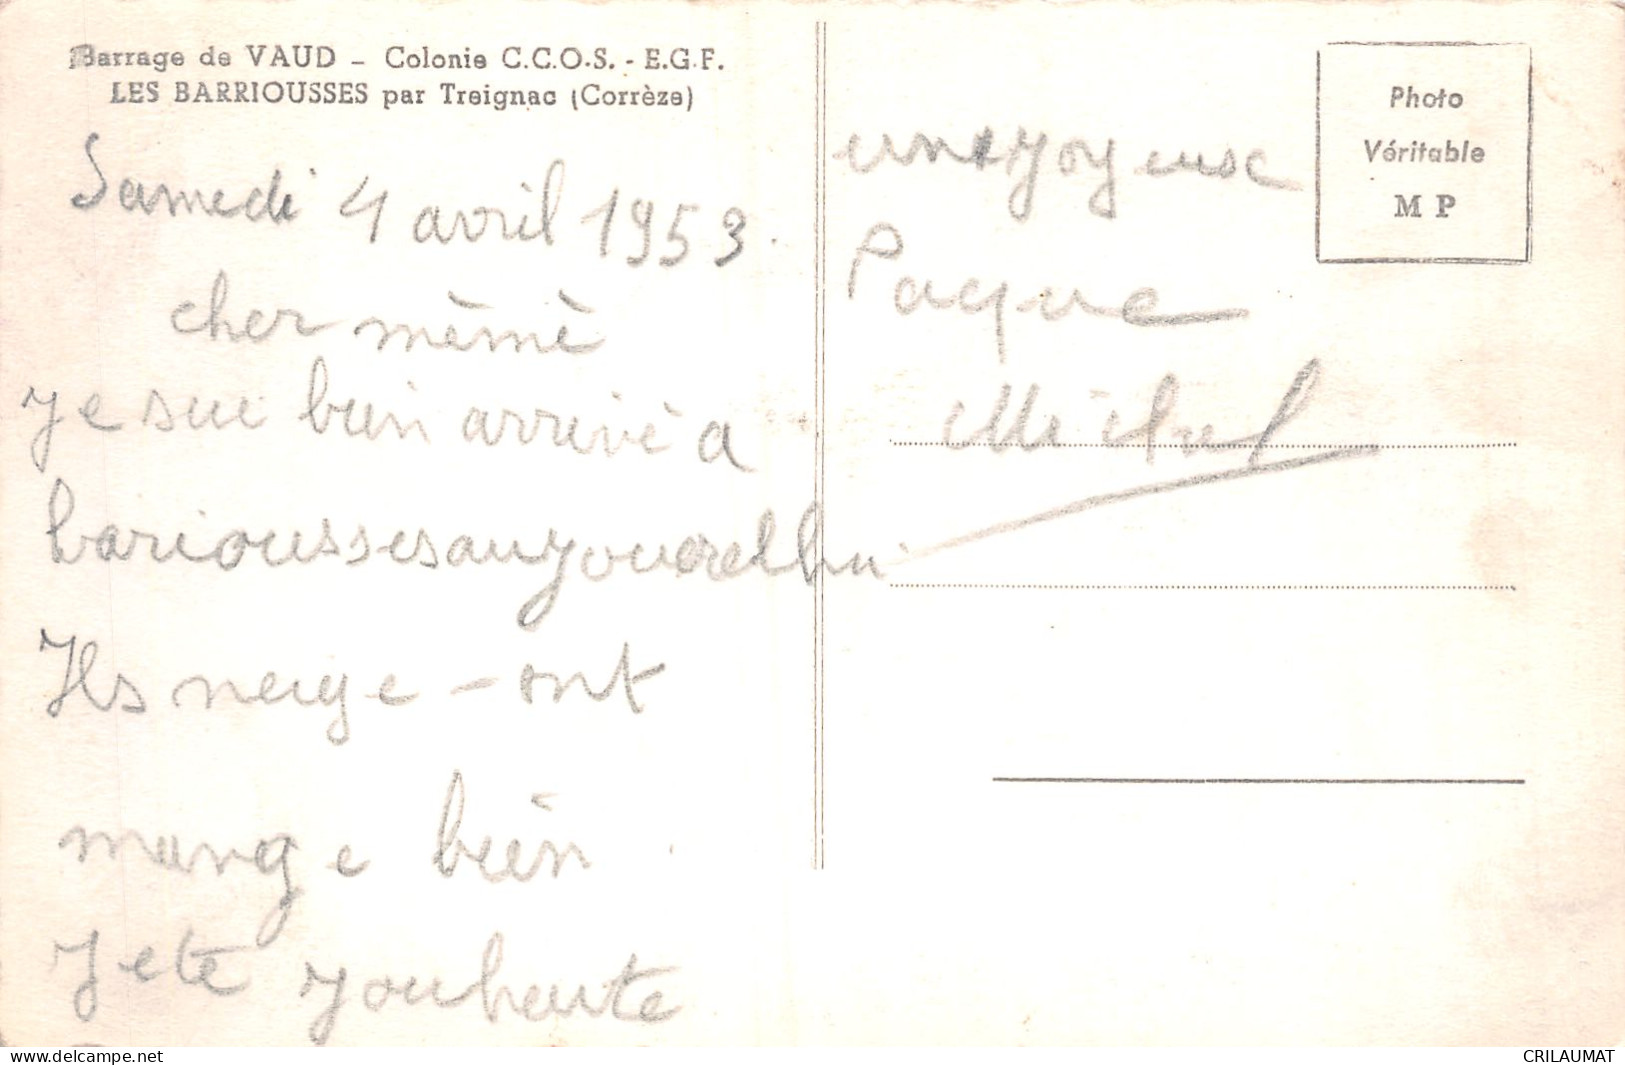 Barrage de VAUD - Colonie C.C.O.S. - E.G.F.
LES BARRIOUSSES par Treignac (Corrèze)
Samedi 4 avril 1953.
cher mèmè
je sui bien arrivè a
bariousses aujourdhui
Ils neige - ont
mange bien
Je te youhente
une joyeuse
Paque
Michel
Photo
Véritable
M P
delcampe.net
CRILAUMAT